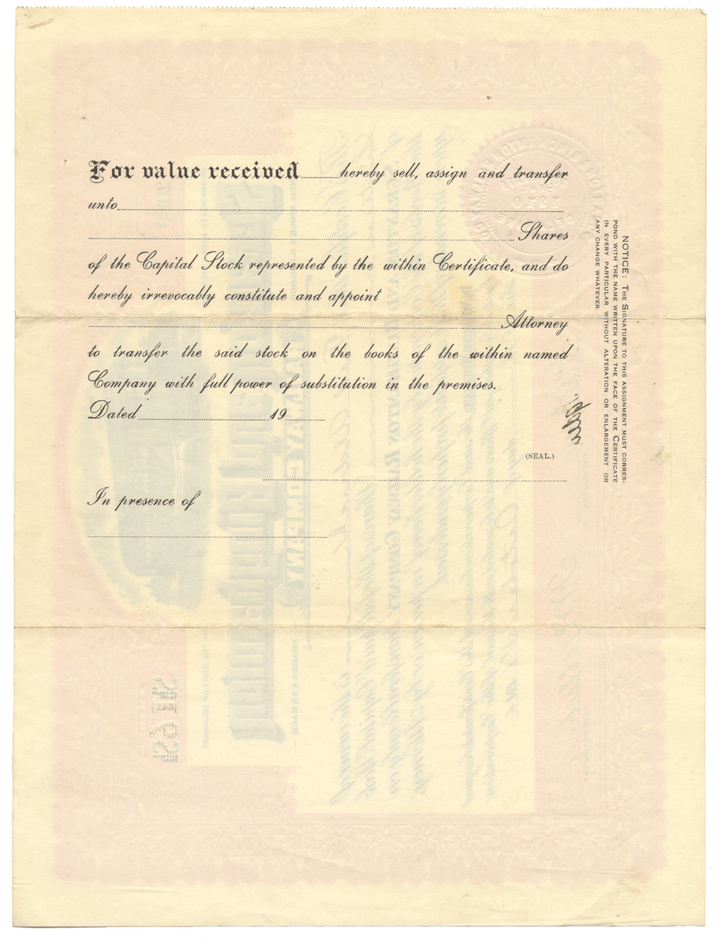 For value received hereby sell, assign and transfer
unto
Shares
of the Capital Stock represented by the within Certificate, and do
hereby irrevocably constitute and appoint
Attorney
to transfer the said stock on the books of the within named
Company with full power of substitution in the premises.
Dated 19
(SEAL.)
In presence of
NOTICE: THE SIGNATURE TO THIS ASSIGNMENT MUST CORRES-
POND WITH THE NAME WRITTEN UPON THE FACE OF THE CERTIFICATE
IN EVERY PARTICULAR WITHOUT ALTERATION OR ENLARGEMENT OR
ANY CHANGE WHATEVER.